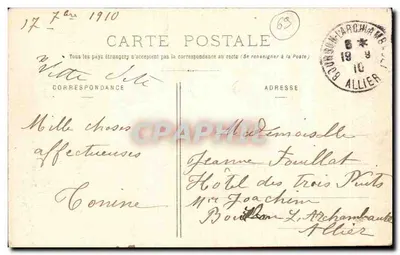 17 7bre 1910
69
CARTE POSTALE
Tous les pays étrangers n'acceptent pas la correspondance au recto (Se renseigner à la Poste)
CORRESPONDANCE
ADRESSE
BOURBON-L'ARCHAMBAULT
8 *
19 9
10
ALLIER
Mille choses
affectueuses
Tonine
Mademoiselle
Jeanne Fouillat
Hôtel des Trois Puits
Mme Joachim
Bourbon L'Archambault
Allier
PIKARTPRINT